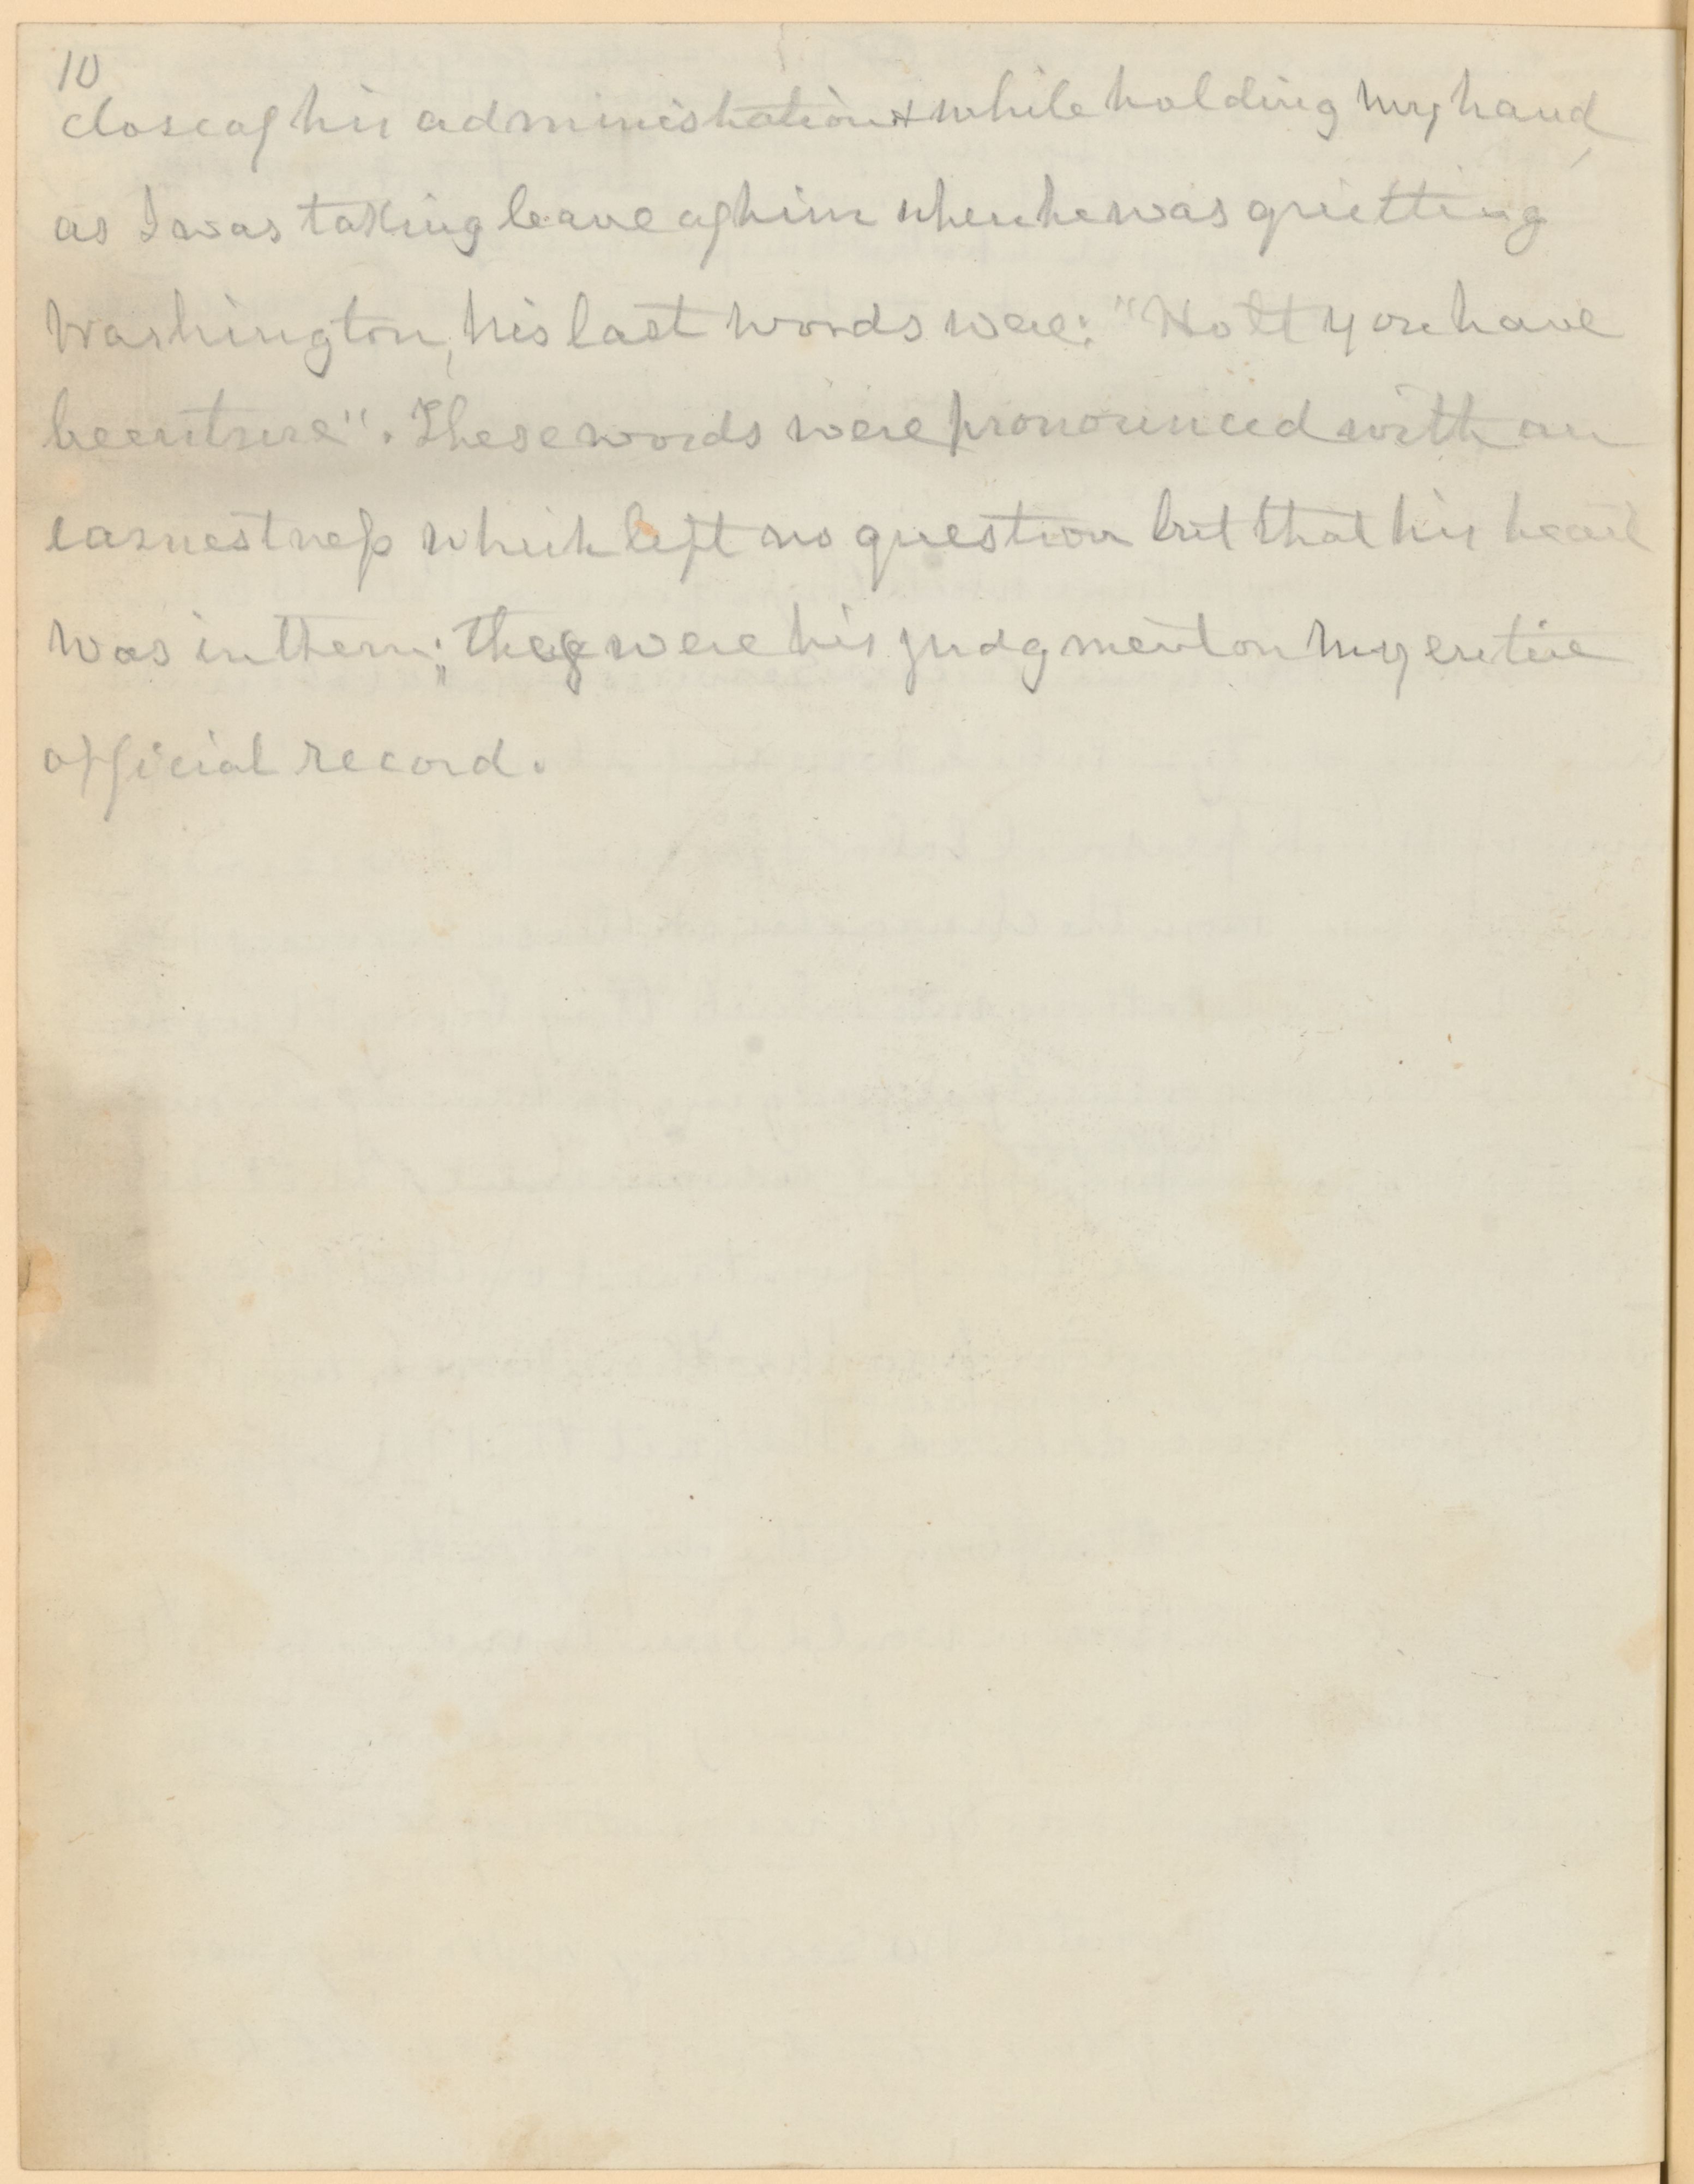 10
close of his administration & while holding my hand,
as I was taking leave of him when he was quitting
Washington, his last words were: "Holt you have
been true". These words were pronounced with an
earnestness which left no question but that his heart
was in them; they were his judgment on my entire
official record.